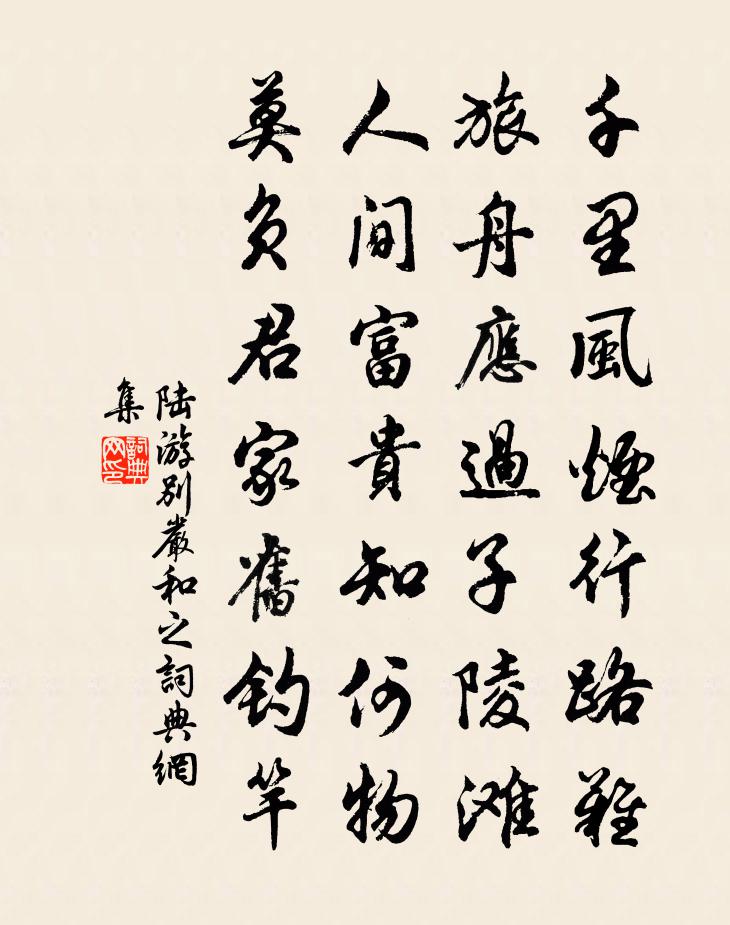 千里風煙行路難
旅舟應過子陵滩
人間富貴知何物
莫負君家舊釣竿
陆游别嚴和之詞典網
集
詞典
网印